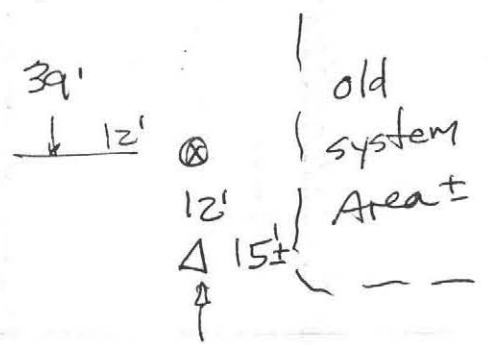 39'
12'
12'
15'±
old
system
Area ±